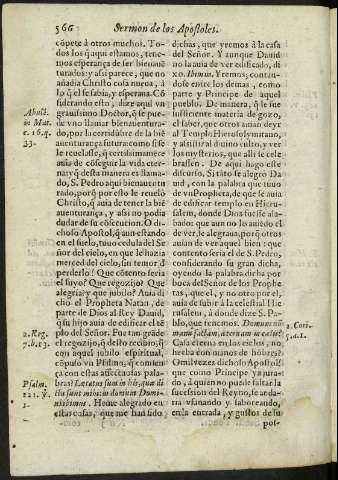 566 Sermon de los Apostoles.
cõpete à otros muchos. To-
dos los q̃ aqui estamos, tene-
mos esperança de ser bienauẽ
turados: y assi parece, que no
añadia Christo cosa nueua, à
lo q̃ el se sabia, y esperaua. Cõ
siderando esto, dize aqui vn
grauissimo Doctor, q̃ se pue-
de vno llamar bienauentura-
do, por la certidũbre de la biẽ
auenturança futura: como si se
le reuelasse, q̃ certissimamẽte
auia de cõseguir la vida eter-
na: y q̃ desta manera es llama-
do, S. Pedro aqui bienauentu
rado, porq̃ por esto le reuelò
Christo, q̃ auia de tener la biẽ
auenturança, y assi no podia
dudar de su cõsecucion. O di-
choso Apostol, q̃ aun estando
en el suelo, tuuo cedula del Se
ñor del cielo, en que le hazia
merced del cielo, sin temor ð
perderlo! Que cõtento seria
el suyo? Que regozijo? Que
alegria? y que jubilo? Auia di
cho el Propheta Natan, de
parte de Dios al Rey Dauid,
q̃ su hijo auia de edificar el tẽ
plo del Señor. Fue tan grãde
el regozijo, q̃ desto recibio, q̃
con aquel jubilo espiritual,
cõpuso vn Psalmo, q̃ comien
ça con estas afectuosas pala-
bras: Lætatus sum in his, quæ di
cta sunt mihi: in domum Domi-
ni ibimus. Heme alegrado en
estas cosas, que me han sido
Abulẽ.
in Mat.
c. 16. q.
33.
2. Reg.
7. b. 13.
Psalm.
121. ℣.
1.
dichas, que yremos à la casa
del Señor. Y aunque Dauid
no la auia de ver edificada, di
xo. Ibimus. Yremos, contan-
dose entre los demas, como
parte y Principe de aquel
pueblo. De manera, q̃ le fue
suficiente materia de gozo,
el saber, que otros auian de yr
al Templo Hierosolymitano,
y assistir al diuino culto, y ver
los mysterios, que alli se cele-
brassen. De aqui hago este
discurso. Si tãto se alegro Da
uid, con la palabra que tuuo
de vn Propheta, de que se auia
de edificar templo en Hieru-
salem, donde Dios fuesse ala-
bado: que aun no lo auiẽdo el
de ver, le alegraua, porq̃ otros
auian de ver aquel bien: que
contento seria el de S. Pedro,
considerando su gran dicha,
oyendo la palabra dicha por
boca del Señor de los Prophe
tas, que el, y no otro por el,
auia de subir à la celestial Hie
rusalem, à donde dize S. Pa-
blo, que tenemos. Domum nõ
manu factam, æternam in cœlis?
Casa eterna en los cielos, no
hecha con manos de hõbres?
O mil vezes dichoso Apostol
que como Principe ya jura-
do, à quien no puede faltar la
succession del Reyno, se anda-
ria vfanando y saboreando,
en la entrada, y gustos de su
pos-
2. Cori.
5. a. 1.